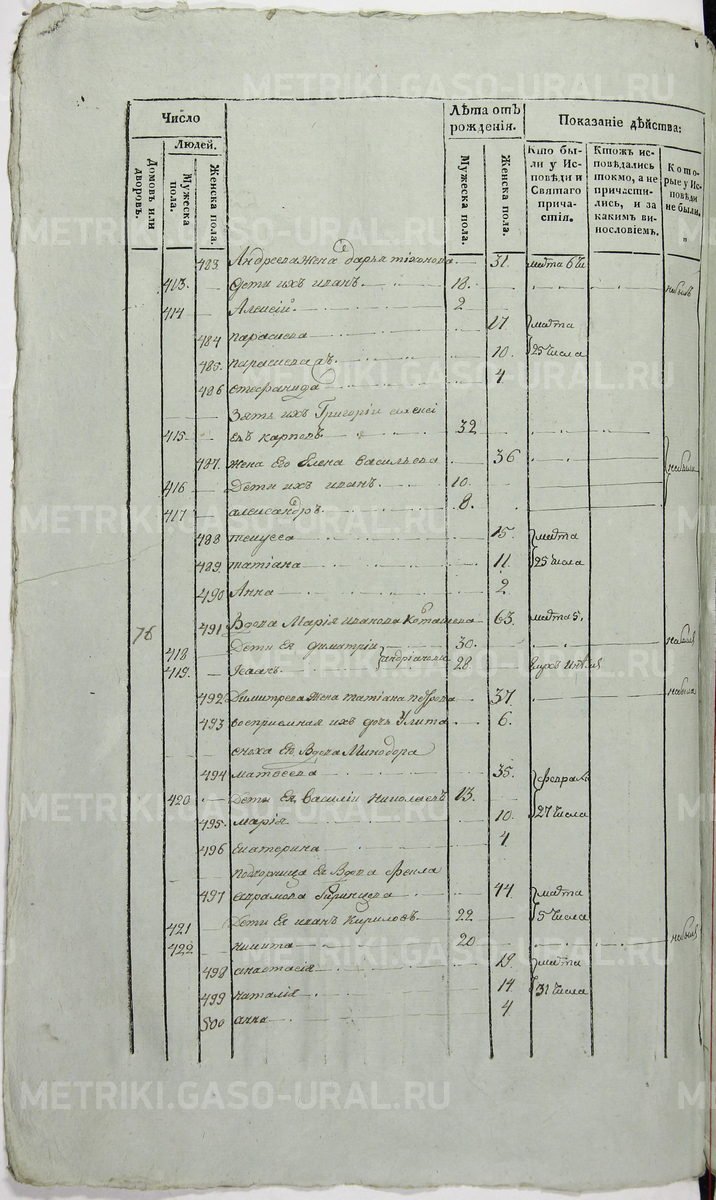 METRIKI.GASO-URAL.RU
Число
Людей.
Домовъ или дворовъ.
Мужеска пола.
Женска пола.
Лѣта отъ рожденія.
Мужеска пола.
Женска пола.
Показаніе дѣйства:
Кто были у Исповѣди и Святаго причастія.
Ктожъ исповѣдались токмо, а не причастились, и за какимъ винословіемъ.
Которые у Исповѣди не были.
483 Андреева жена дарья тихонова 31. марта
413 дети ихъ иванъ 18. небылъ
414 Алексій 2
484 параскева 17. марта
485 параскева 10. 25 числа
486 стефанида 4
Зять ихъ Григорій алексі
415 евъ карповъ 32
487. жена его Елена васильева 36 небыли
416 Дети ихъ иванъ 10.
417 александръ 8.
488 15. марта
489. татіана 11. 25 числа
490 Анна 2
76 491 Вдова Марія иванова 63. марта 5.
418 дети Ея димитрій 30. небылъ
419. Исаакъ андріановы 28
492 Димитрева жена татіана петрова 37. небыла
493 восприемная ихъ дочь Улита 6.
сноха ея Вдова Минодора
494 матвеева 35. февраля
420 дети Ея василій николаевъ 13. 27 числа
495. марія 10.
496 екатерина 4
Вдова фекла
497 абрамова 44 марта
421 дети Ея иванъ кириловъ 22 5 числа
422 никита 20 небылъ
498 анастасія марта
499 наталія 14 31 числа
500 анна 4